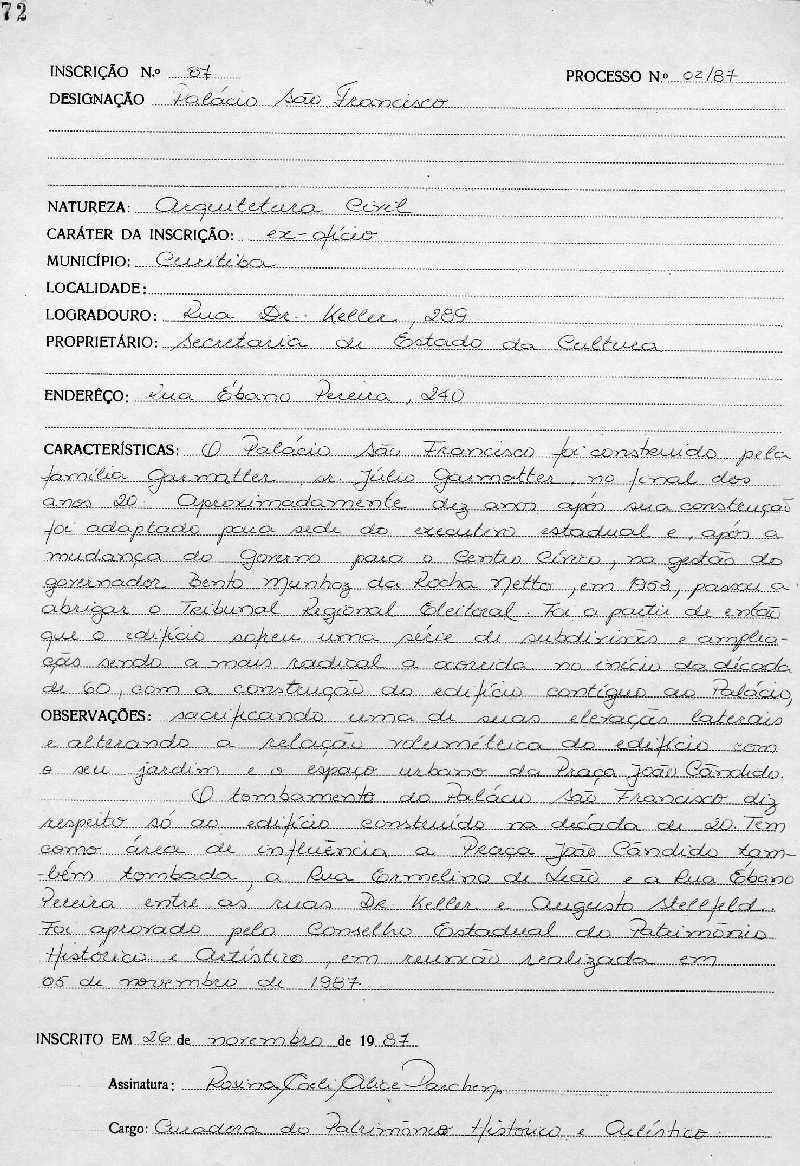 72
INSCRIÇÃO N.º 87 PROCESSO N.º 02/87
DESIGNAÇÃO Palácio São Francisco
NATUREZA: Arquitetura Civil
CARÁTER DA INSCRIÇÃO: ex-ofício
MUNICÍPIO: Curitiba
LOCALIDADE:
LOGRADOURO: Rua Dr. Keller, 289
PROPRIETÁRIO: Secretaria de Estado da Cultura
ENDERÊÇO: Rua Ébano Pereira, 240
CARACTERÍSTICAS: O Palácio São Francisco foi construido pela
família Garmatter, sr. Júlio Garmatter, no final dos
anos 20. Aproximadamente dez anos após sua construção
foi adaptado para sede do executivo estadual e, após a
mudança do Governo para o Centro Cívico, na gestão do
governador Bento Munhoz da Rocha Netto, em 1953, passou a
abrigar o Tribunal Regional Eleitoral. Foi a partir de então
que o edifício sofreu uma série de subdivisões e amplia-
ções sendo a mais radical a ocorrida no início da década
de 60, com a construção do edifício contíguo ao Palácio,
OBSERVAÇÕES: sacrificando uma de suas elevações laterais
e alterando a relação volumétrica do edifício com
o seu jardim e o espaço urbano da Praça João Cândido.
O tombamento do Palácio São Francisco diz
respeito só ao edifício construído na década de 20. Tem
como área de influência a Praça João Cândido tam-
-bém tombada, a Rua Ermelino de Leão e a Rua Ébano
Pereira entre as ruas Dr Keller e Augusto Stellfeld.
Foi aprovado pelo Conselho Estadual do Patrimônio
Histórico e Artístico, em reunião realizada em
05 de novembro de 1987.
INSCRITO EM 26 de novembro de 1987
Assinatura: Rosina Coeli Alice Parchen
Cargo: Curadora do Patrimônio Histórico e Artístico.